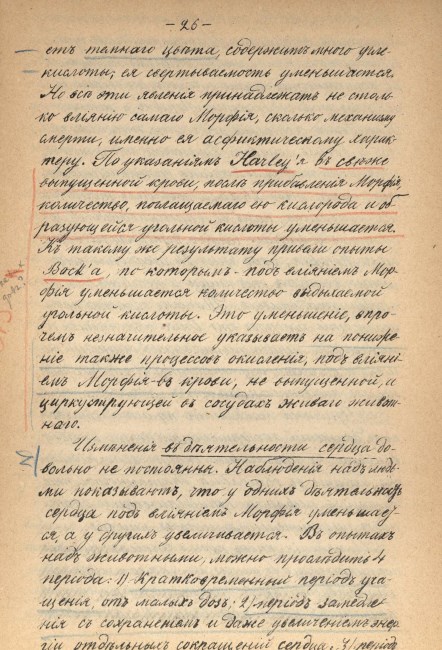 – 26 –
етъ темнаго цвѣта, содержитъ много угле-
кислоты; ея свертываемость уменьшается.
Но всѣ эти явленія принадлежатъ не столь-
ко вліянію самаго Морфія, сколько механизму
смерти, именно ея асфиктическому харак-
теру. По указаніямъ Harley'я въ свѣже
выпущенной крови, послѣ прибавленія Морфія,
количество, поглащаемаго ею кислорода и об-
разующейся угольной кислоты уменьшается.
Къ такому же результату привели опыты
Bock'а, по которымъ - подъ вліяніемъ Мор-
фія уменьшается количество выдыхаемой
угольной кислоты. Это уменьшеніе, впро-
чемъ незначительное указываетъ на пониже-
ніе также процессовъ окисленія, подъ вліяні-
емъ Морфія - въ крови, не выпущенной, и
циркулирующей въ сосудахъ живаго живот-
наго.
Измѣненія въ дѣятельности сердца до-
вольно не постоянны. Наблюденія надъ людь-
ми показываютъ, что у однихъ дѣятельность
сердца подъ вліяніемъ Морфія уменьшает-
ся, а у другихъ увеличивается. Въ опытахъ
надъ животными, можно прослѣдить 4
періода: 1) Кратковременный періодъ уча-
щенія, отъ малыхъ дозъ; 2) періодъ замедле-
нія съ сохраненіемъ и даже увеличеніемъ энер-
гіи отдѣльныхъ сокращеній сердца; 3) періодъ